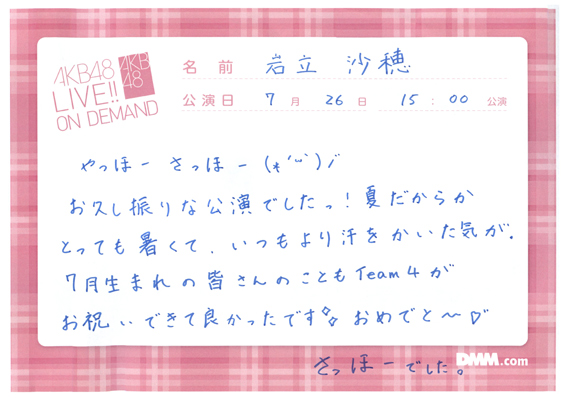 AKB48
LIVE!!
ON DEMAND
AKB
48
名前 岩立 沙穂
公演日 7月 26日 15:00 公演
やっほー さっほー(*'◡')ﾉ
お久し振りな公演でしたっ!夏だからか
とっても暑くて、いつもより汗をかいた気が.
7月生まれの皆さんのこともTeam4が
お祝いできて良かったです おめでと〜♡
さっほーでした。
DMM.com